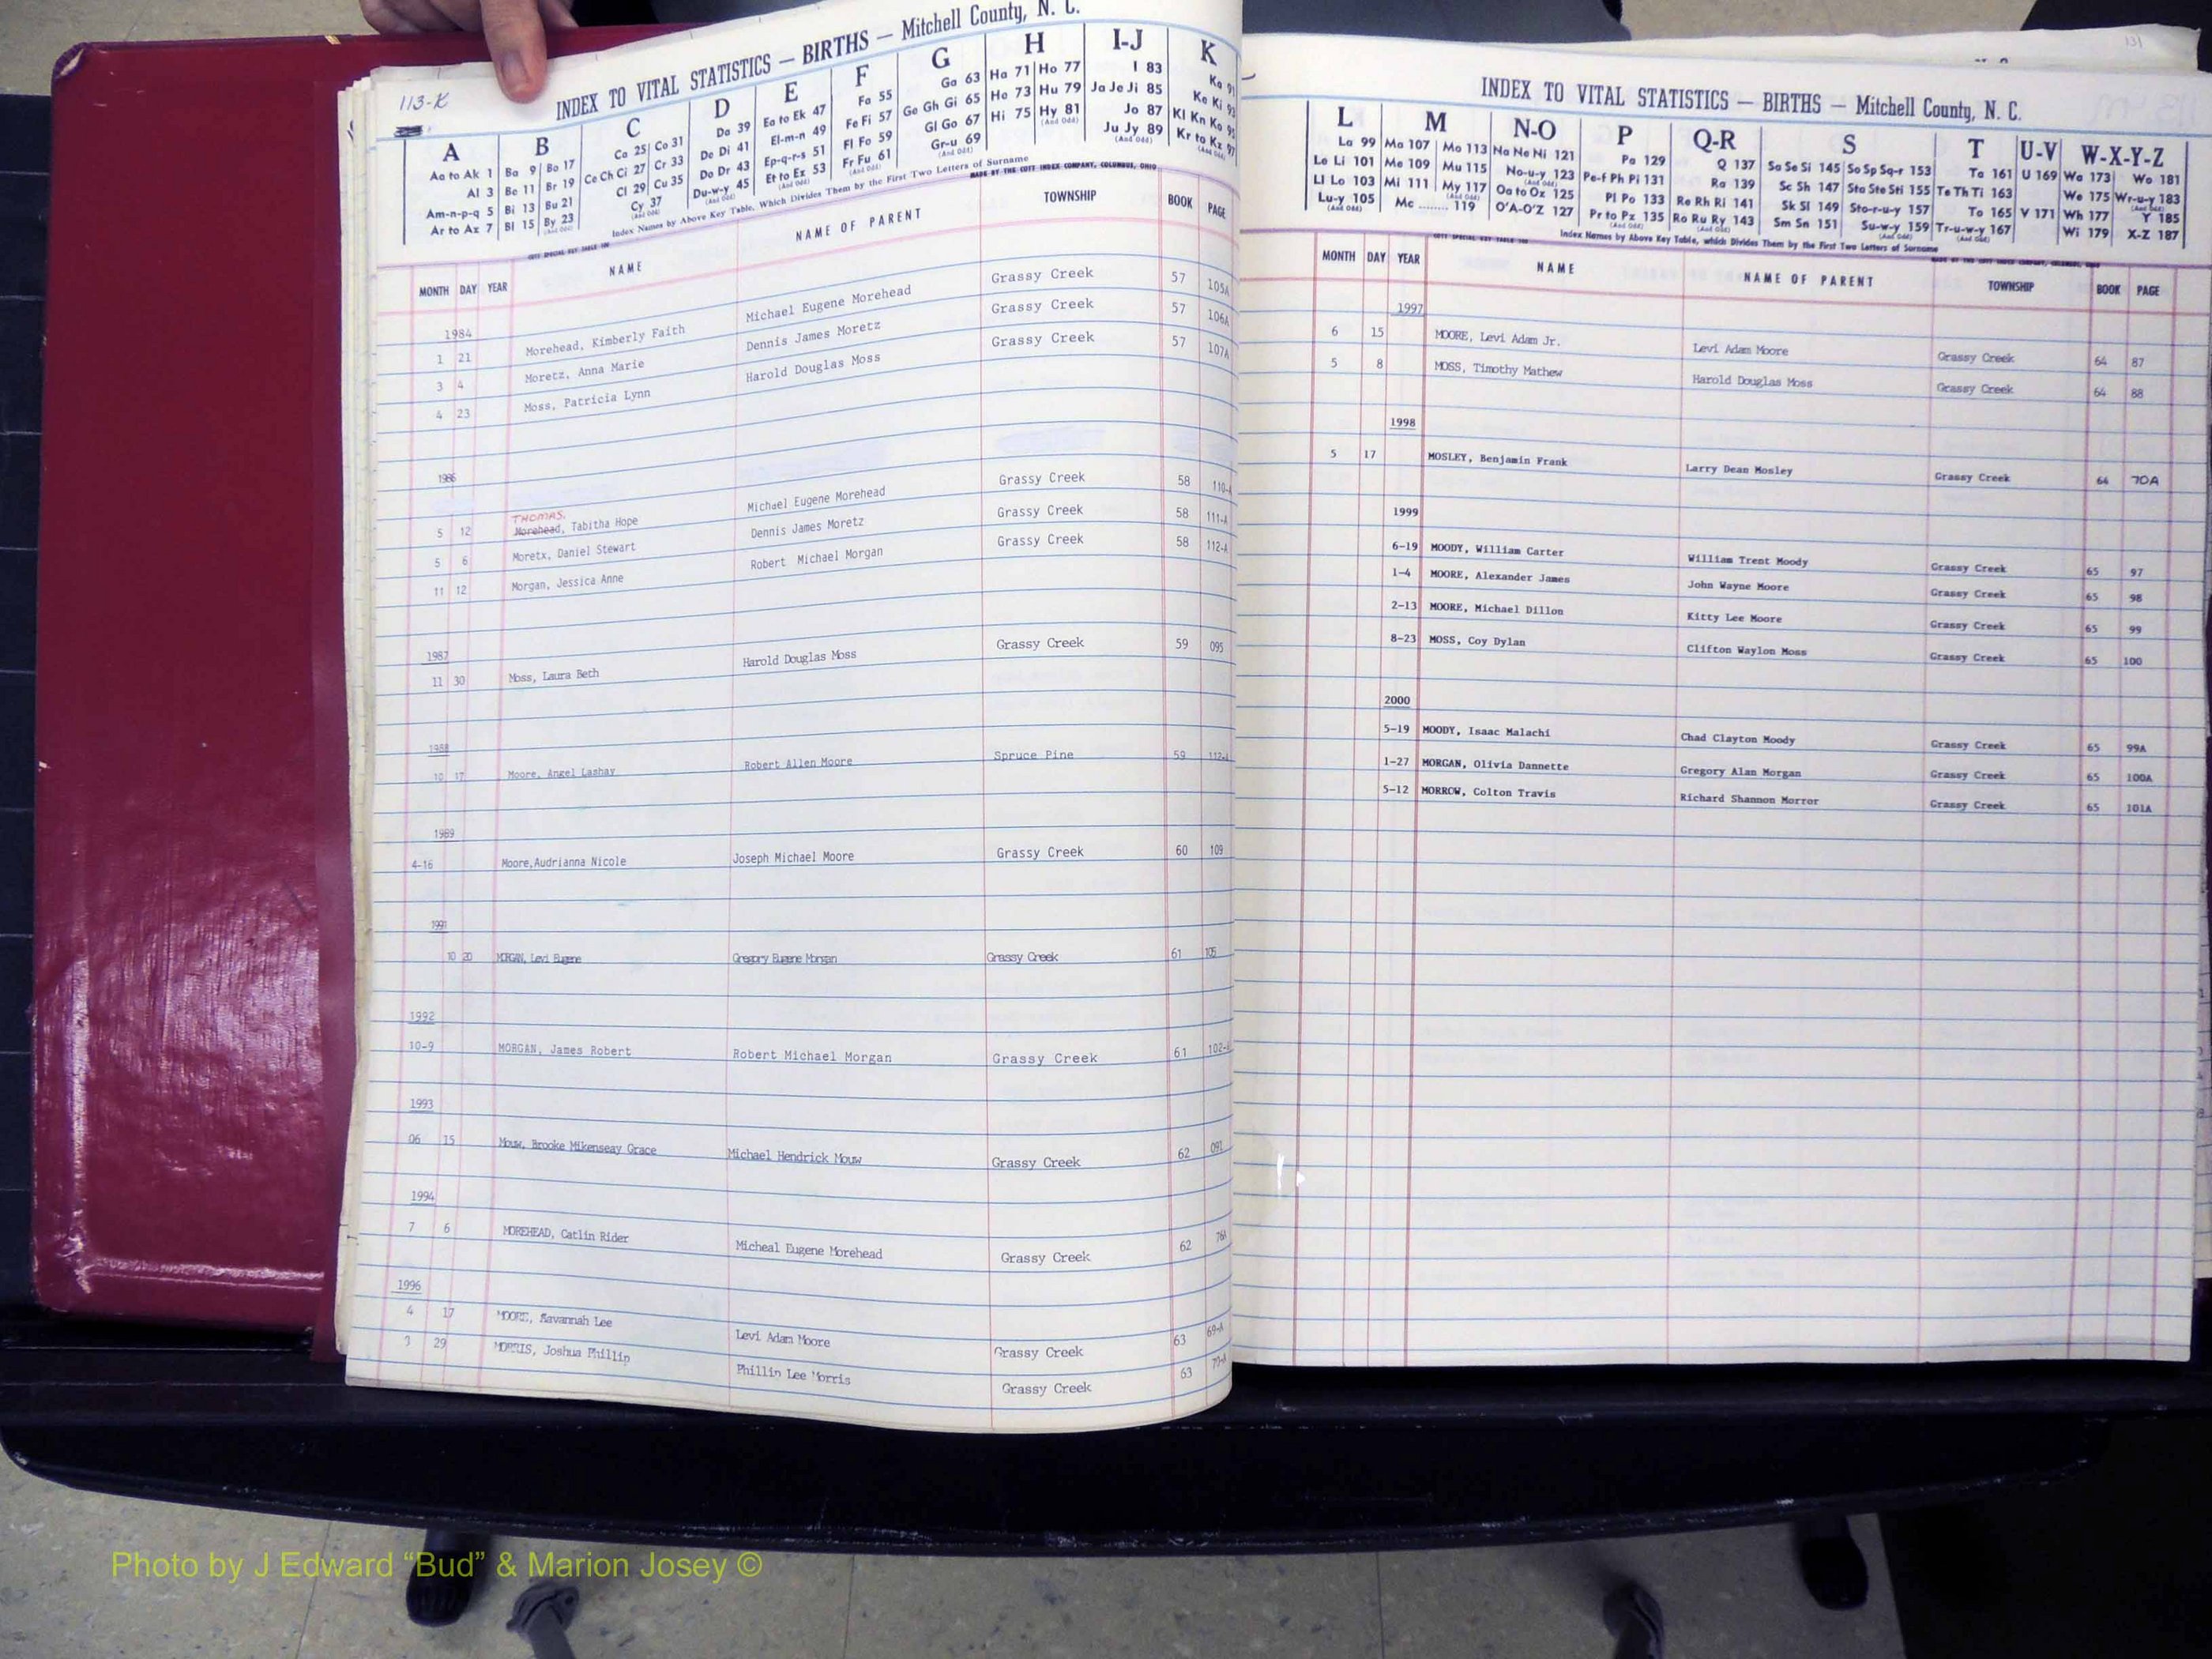 113-K
INDEX TO VITAL STATISTICS — BIRTHS — Mitchell County, N. C.
A B C D E F G H I-J K
Aa to Ak 1 Ba 9 Bo 17 Ca 25 Co 31 Da 39 Ea to Ek 47 Fa 55 Ga 63 Ha 71 Ho 77 I 83 Ka 91
Al 3 Be 11 Br 19 Ce Ch Ci 27 Cr 33 De Di 41 El-m-n 49 Fe Fi 57 Ge Gh Gi 65 He 73 Hu 79 Ja Je Ji 85 Ke Ki 93
Am-n-p-q 5 Bi 13 Bu 21 Cl 29 Cu 35 Do Dr 43 Ep-q-r-s 51 Fl Fo 59 Gl Go 67 Hi 75 Hy 81 Jo 87 Kl Kn Ko 95
Ar to Az 7 Bl 15 By 23 Cy 37 Du-w-y 45 Et to Ex 53 Fr Fu 61 Gr-u 69 Ju Jy 89 Kr to Kz 97
Index Names by Above Key Table, Which Divides Them by the First Two Letters of Surname
MADE BY THE COTT INDEX COMPANY, COLUMBUS, OHIO
MONTH DAY YEAR NAME NAME OF PARENT TOWNSHIP BOOK PAGE
1984
1 21 Morehead, Kimberly Faith Michael Eugene Morehead Grassy Creek 57 105A
3 4 Moretz, Anna Marie Dennis James Moretz Grassy Creek 57 106A
4 23 Moss, Patricia Lynn Harold Douglas Moss Grassy Creek 57 107A
THOMAS,
5 12 Morehead, Tabitha Hope Michael Eugene Morehead Grassy Creek 58 110-A
5 6 Moretx, Daniel Stewart Dennis James Moretz Grassy Creek 58 111-A
11 12 Morgan, Jessica Anne Robert Michael Morgan Grassy Creek 58 112-A
1987
11 30 Moss, Laura Beth Harold Douglas Moss Grassy Creek 59 095
1988
10 17 Moore, Angel Lashay Robert Allen Moore Spruce Pine 59 112-A
1989
4-16 Moore,Audrianna Nicole Joseph Michael Moore Grassy Creek 60 109
1991
10 20 MORGAN, Levi Eugene Gregory Eugene Morgan Grassy Creek 61 105
1992
10-9 MORGAN, James Robert Robert Michael Morgan Grassy Creek 61 102-A
1993
06 15 Mouw, Brooke Mikenseay Grace Michael Hendrick Mouw Grassy Creek 62 091
1994
7 6 MOREHEAD, Catlin Rider Micheal Eugene Morehead Grassy Creek 62 76A
1996
4 17 MOORE, Savannah Lee Levi Adam Moore Grassy Creek 63 69-A
3 29 MORRIS, Joshua Phillip Phillip Lee Morris Grassy Creek 63 70-A
INDEX TO VITAL STATISTICS — BIRTHS — Mitchell County, N. C.
L M N-O P Q-R S T U-V W-X-Y-Z
La 99 Ma 107 Mo 113 Na Ne Ni 121 Pa 129 Q 137 Sa Se Si 145 So Sp Sq-r 153 Ta 161 U 169 Wa 173 Wo 181
Le Li 101 Me 109 Mu 115 No-u-y 123 Pe-f Ph Pi 131 Ra 139 Sc Sh 147 Sta Ste Sti 155 Te Th Ti 163 We 175 Wr-u-y 183
Ll Lo 103 Mi 111 My 117 Oa to Oz 125 Pl Po 133 Re Rh Ri 141 Sk Sl 149 Sto-r-u-y 157 To 165 V 171 Wh 177 Y 185
Lu-y 105 Mc ........ 119 O'A-O'Z 127 Pr to Pz 135 Ro Ru Ry 143 Sm Sn 151 Su-w-y 159 Tr-u-w-y 167 Wi 179 X-Z 187
Index Names by Above Key Table, which Divides Them by the First Two Letters of Surname
MONTH DAY YEAR NAME NAME OF PARENT TOWNSHIP BOOK PAGE
1997
6 15 MOORE, Levi Adam Jr. Levi Adam Moore Grassy Creek 64 87
5 8 MOSS, Timothy Mathew Harold Douglas Moss Grassy Creek 64 88
1998
5 17 MOSLEY, Benjamin Frank Larry Dean Mosley Grassy Creek 64 70A
1999
6-19 MOODY, William Carter William Trent Moody Grassy Creek 65 97
1-4 MOORE, Alexander James John Wayne Moore Grassy Creek 65 98
2-13 MOORE, Michael Dillon Kitty Lee Moore Grassy Creek 65 99
8-23 MOSS, Coy Dylan Clifton Waylon Moss Grassy Creek 65 100
2000
5-19 MOODY, Isaac Malachi Chad Clayton Moody Grassy Creek 65 99A
1-27 MORGAN, Olivia Dannette Gregory Alan Morgan Grassy Creek 65 100A
5-12 MORROW, Colton Travis Richard Shannon Morror Grassy Creek 65 101A
Photo by J Edward “Bud” & Marion Josey ©